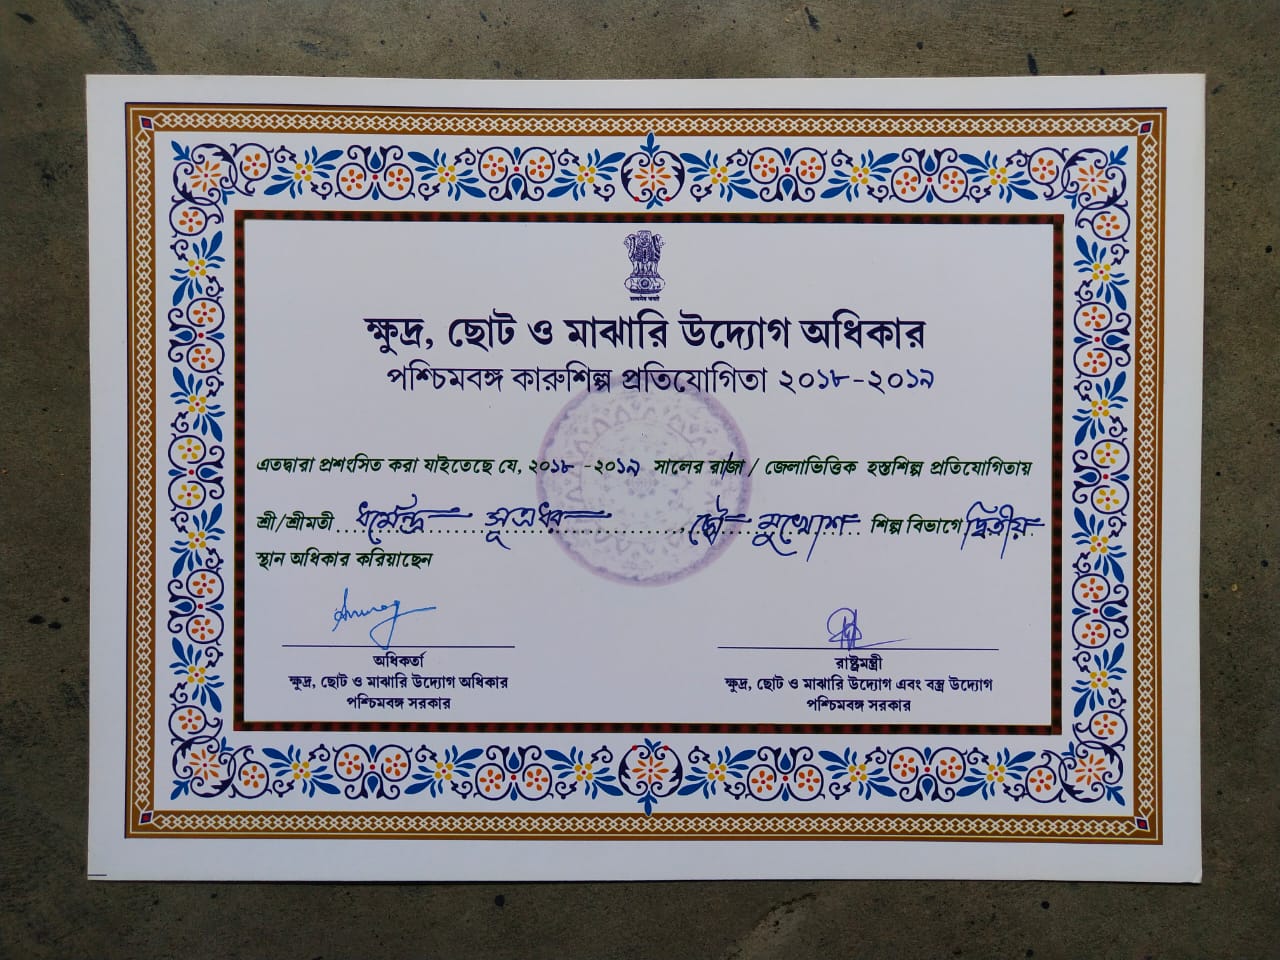 सत्यमेव जयते
ক্ষুদ্র, ছোট ও মাঝারি উদ্যোগ অধিকার
পশ্চিমবঙ্গ কারুশিল্প প্রতিযোগিতা ২০১৮-২০১৯
এতদ্বারা প্রশংসিত করা যাইতেছে যে, ২০১৮ -২০১৯ সালের রাজ্য / জেলাভিত্তিক হস্তশিল্প প্রতিযোগিতায়
শ্রী/শ্রীমতী ধর্মেন্দ্র সূত্রধর ছৌ মুখোশ শিল্প বিভাগে দ্বিতীয়
স্থান অধিকার করিয়াছেন
অধিকর্তা
ক্ষুদ্র, ছোট ও মাঝারি উদ্যোগ অধিকার
পশ্চিমবঙ্গ সরকার
রাষ্ট্রমন্ত্রী
ক্ষুদ্র, ছোট ও মাঝারি উদ্যোগ এবং বস্ত্র উদ্যোগ
পশ্চিমবঙ্গ সরকার